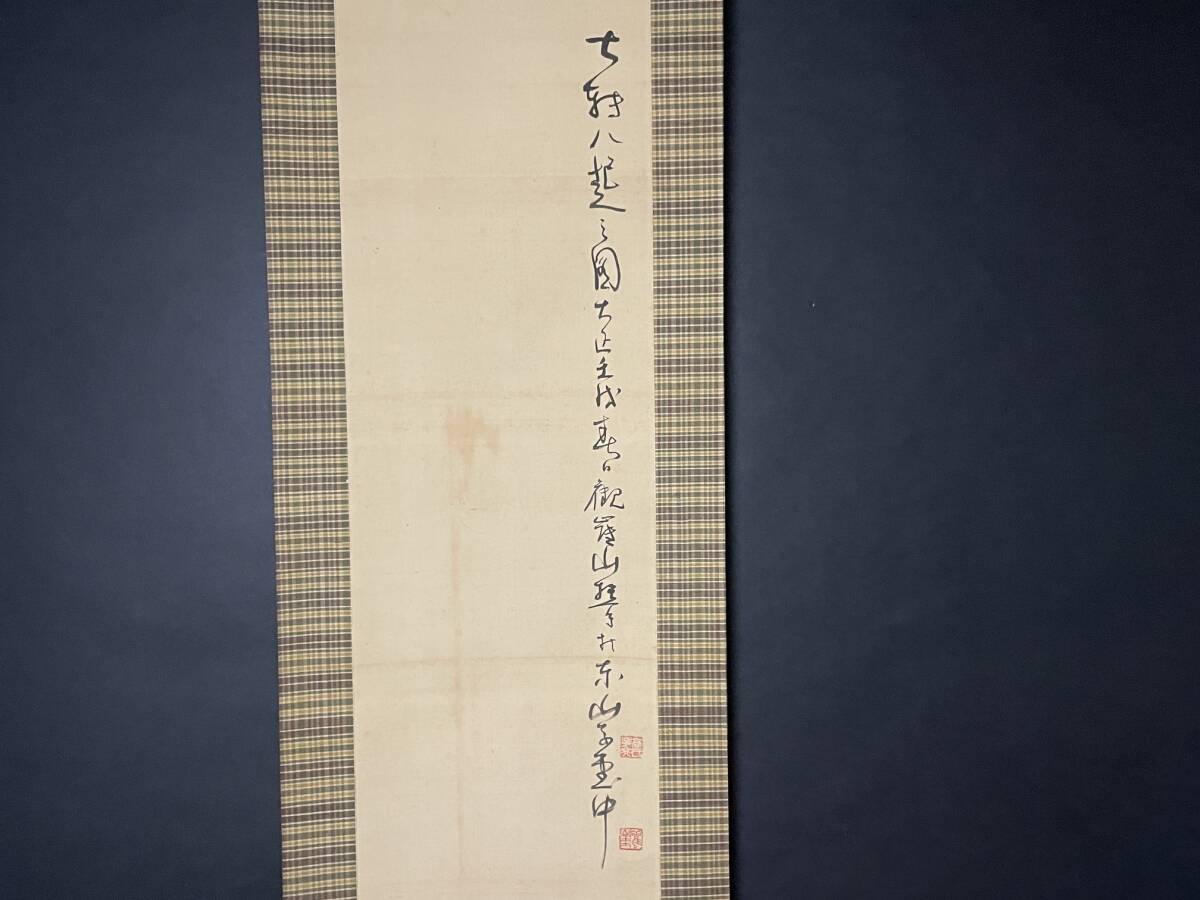 七転八起之図大正壬戌春日観峯山樵写於東山草堂中